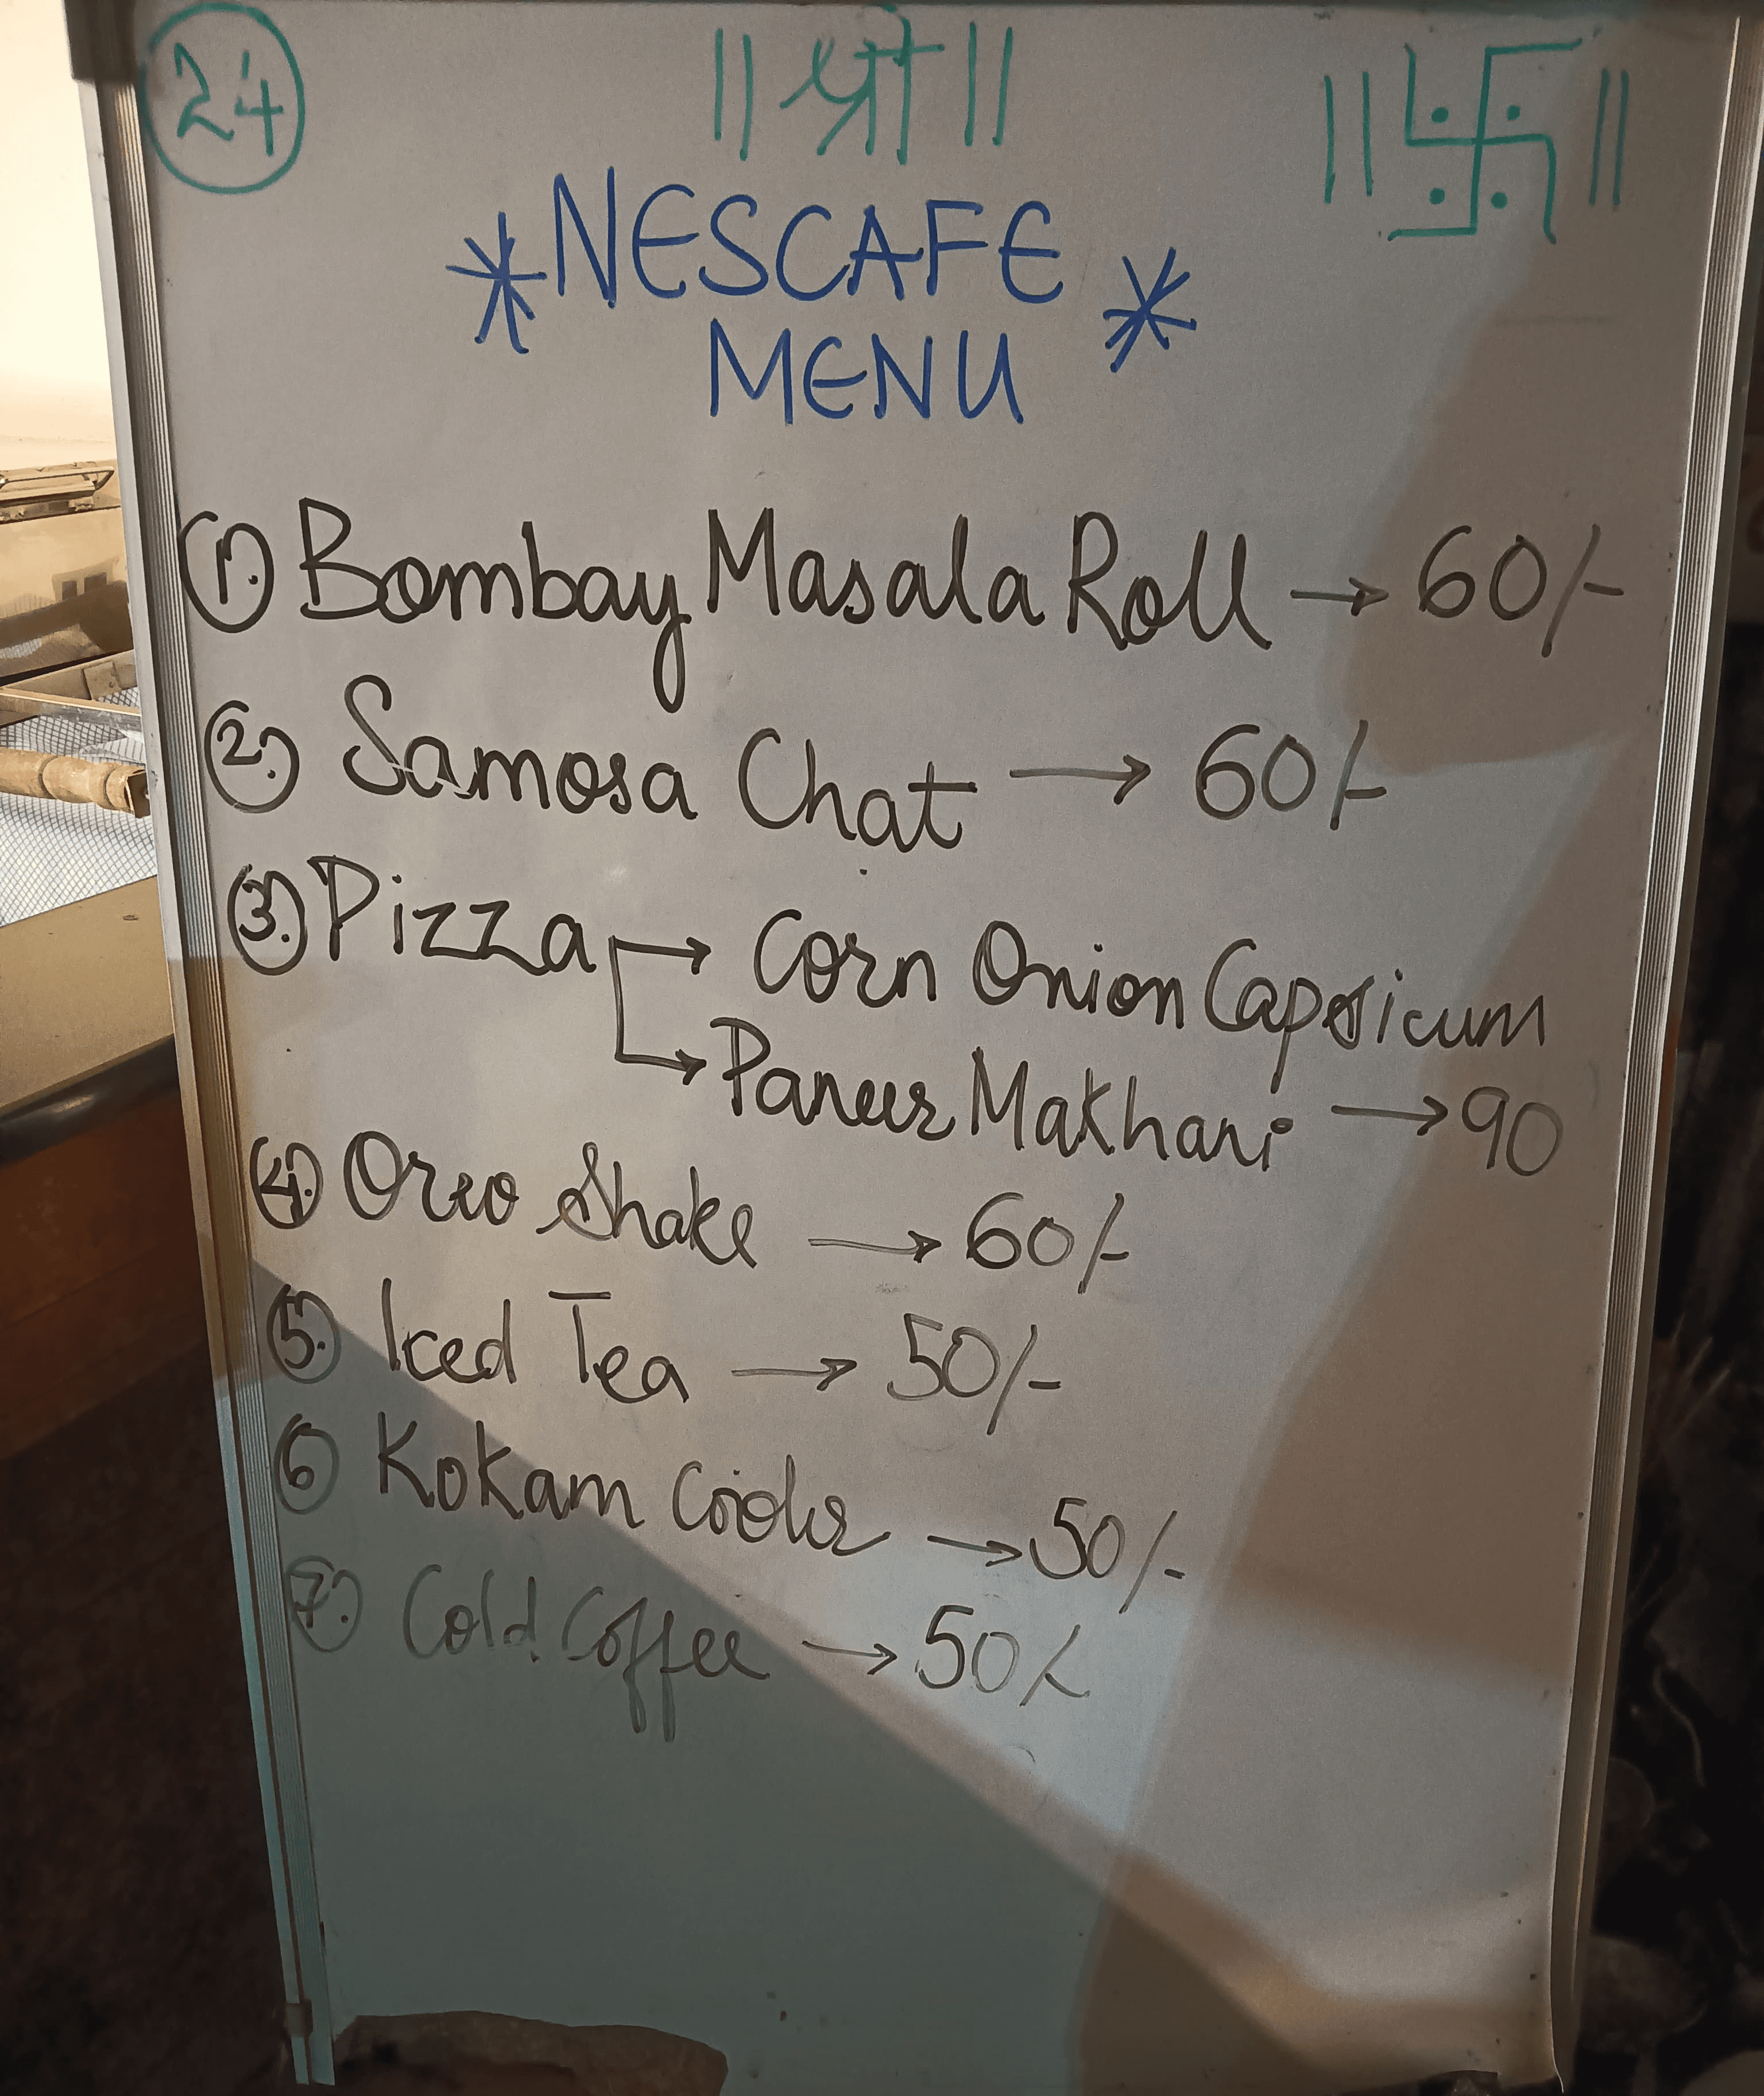 24 || श्री || || 卐 ||
* NESCAFE *
MENU
1. Bombay Masala Roll → 60/-
2. Samosa Chat → 60/-
3. Pizza → Corn Onion Capsicum
→ Paneer Makhani → 90
4. Oreo Shake → 60/-
5. Iced Tea → 50/-
6 Kokam Cooler → 50/-
7. Cold Coffee → 50/-